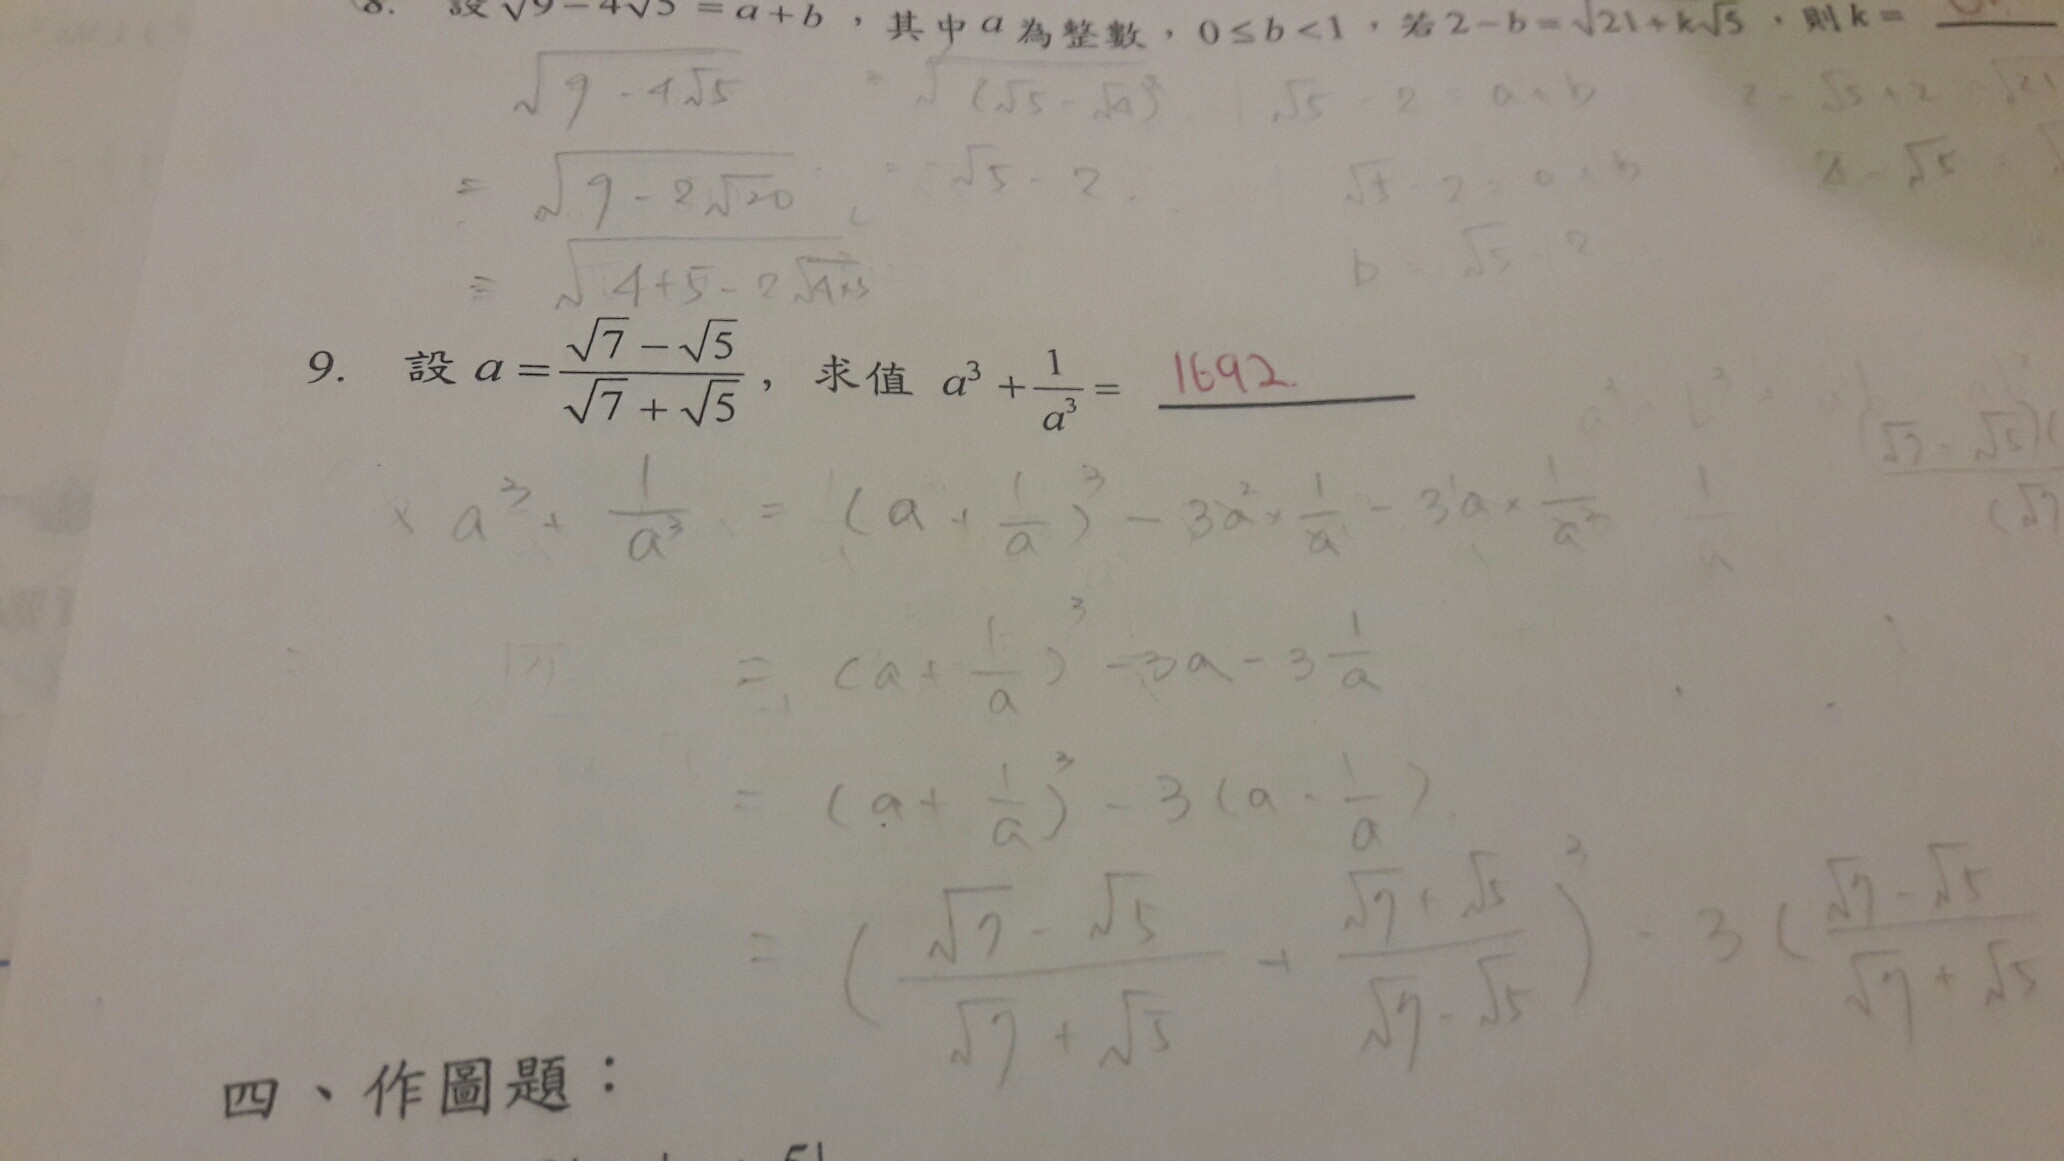 8. 設 √9−4√5 = a+b，其中 a 為整數，0≤b<1，若 2−b=√21+k√5，則 k=
√9-4√5 = √(√5-√4)² √5-2=a+b 2-√5+2=√21
= √9-2√20 = √5-2 √5-2=0+b 4-√5=√
= √4+5-2√4×5 b=√5-2
9. 設 a = (√7−√5)/(√7+√5)，求值 a³ + 1/a³ = 1692
a³ + 1/a³ = (a + 1/a)³ - 3a² × 1/a - 3a × 1/a² 1/a
= (a + 1/a)³ - 3a - 3 1/a
= (a + 1/a)³ - 3(a - 1/a)
= ((√7-√5)/(√7+√5) + (√7+√5)/(√7-√5))³ - 3((√7-√5)/(√7+√5)
四、作圖題：